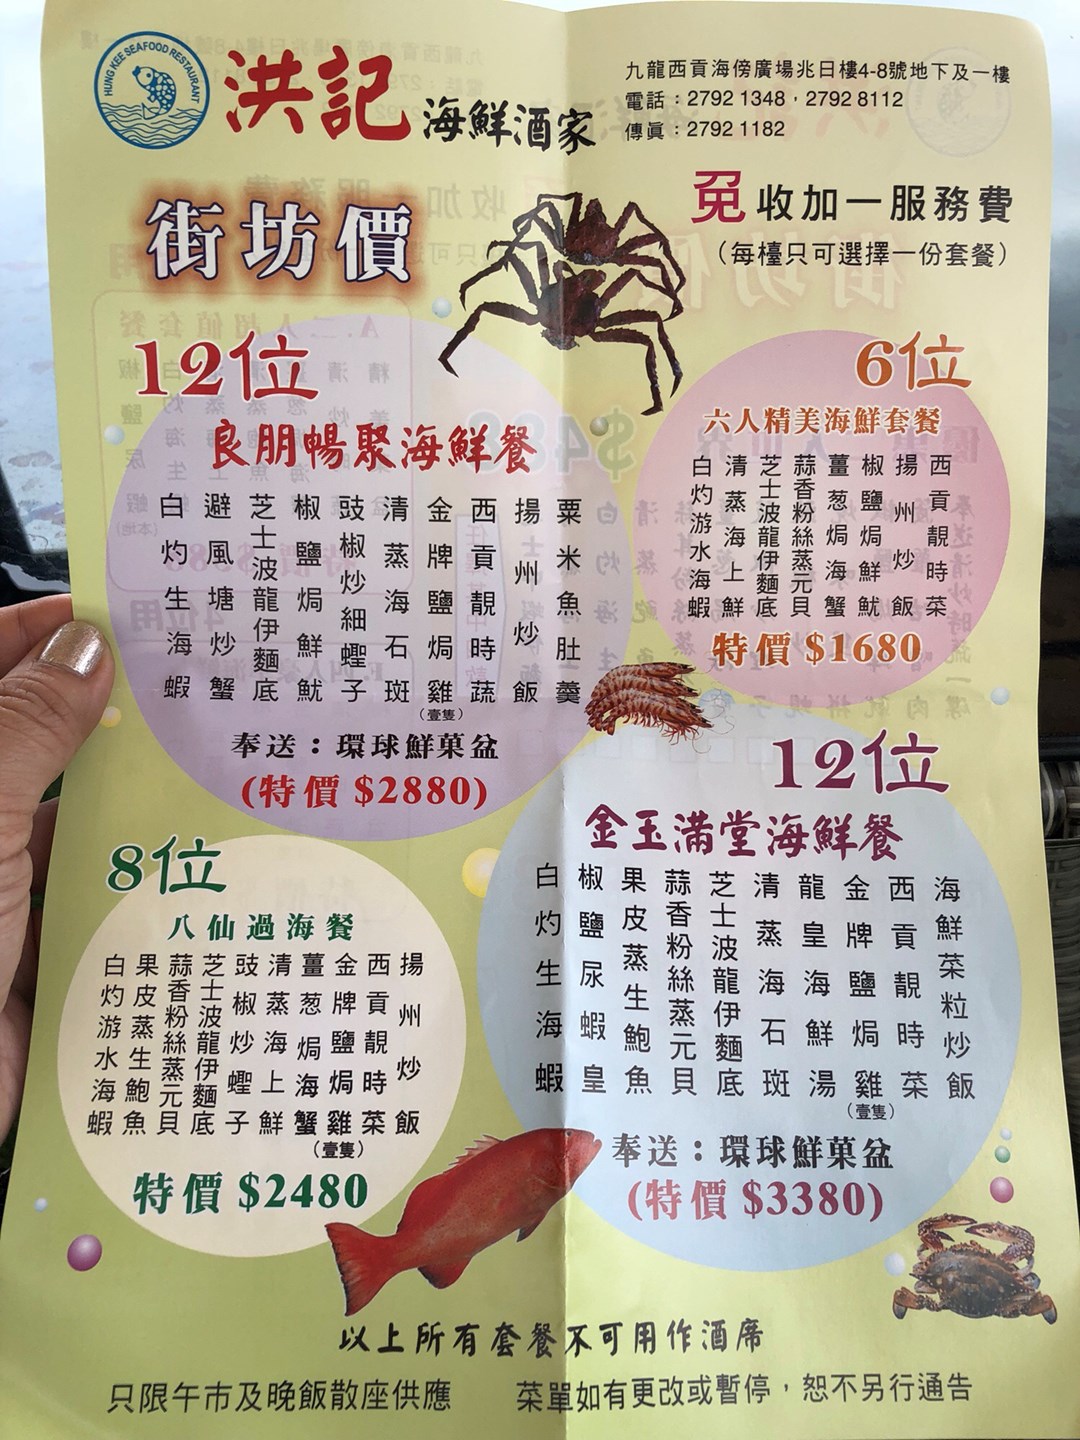 HUNG KEE SEAFOOD RESTAURANT
洪記海鮮酒家
九龍西貢海傍廣場兆日樓4-8號地下及一樓
電話：2792 1348，2792 8112
傳眞：2792 1182
街坊價
免收加一服務費
（每檯只可選擇一份套餐）
12位
良朋暢聚海鮮餐
白灼生海蝦
避風塘炒蟹
芝士波龍伊麵底
椒鹽焗鮮魷
豉椒炒細蟶子
清蒸海石斑
金牌鹽焗雞
（壹隻）
西貢靚時蔬
揚州炒飯
粟米魚肚羹
奉送：環球鮮菓盆
(特價 $2880)
6位
六人精美海鮮套餐
白灼游水海蝦
清蒸海上鮮
芝士波龍伊麵底
蒜香粉絲蒸元貝
薑葱焗海蟹
椒鹽焗鮮魷
揚州炒飯
西貢靚時菜
特價 $1680
8位
八仙過海餐
白灼游水海蝦
果皮蒸生鮑魚
蒜香粉絲蒸元貝
芝士波龍伊麵底
豉椒炒蟶子
清蒸海上鮮
薑葱焗海蟹
金牌鹽焗雞
（壹隻）
西貢靚時菜
揚州炒飯
特價 $2480
12位
金玉滿堂海鮮餐
白灼生海蝦
椒鹽尿蝦皇
果皮蒸生鮑魚
蒜香粉絲蒸元貝
芝士波龍伊麵底
清蒸海石斑
龍皇海鮮湯
金牌鹽焗雞
（壹隻）
西貢靚時菜
海鮮菜粒炒飯
奉送：環球鮮菓盆
(特價 $3380)
以上所有套餐不可用作酒席
只限午市及晚飯散座供應
菜單如有更改或暫停，恕不另行通告